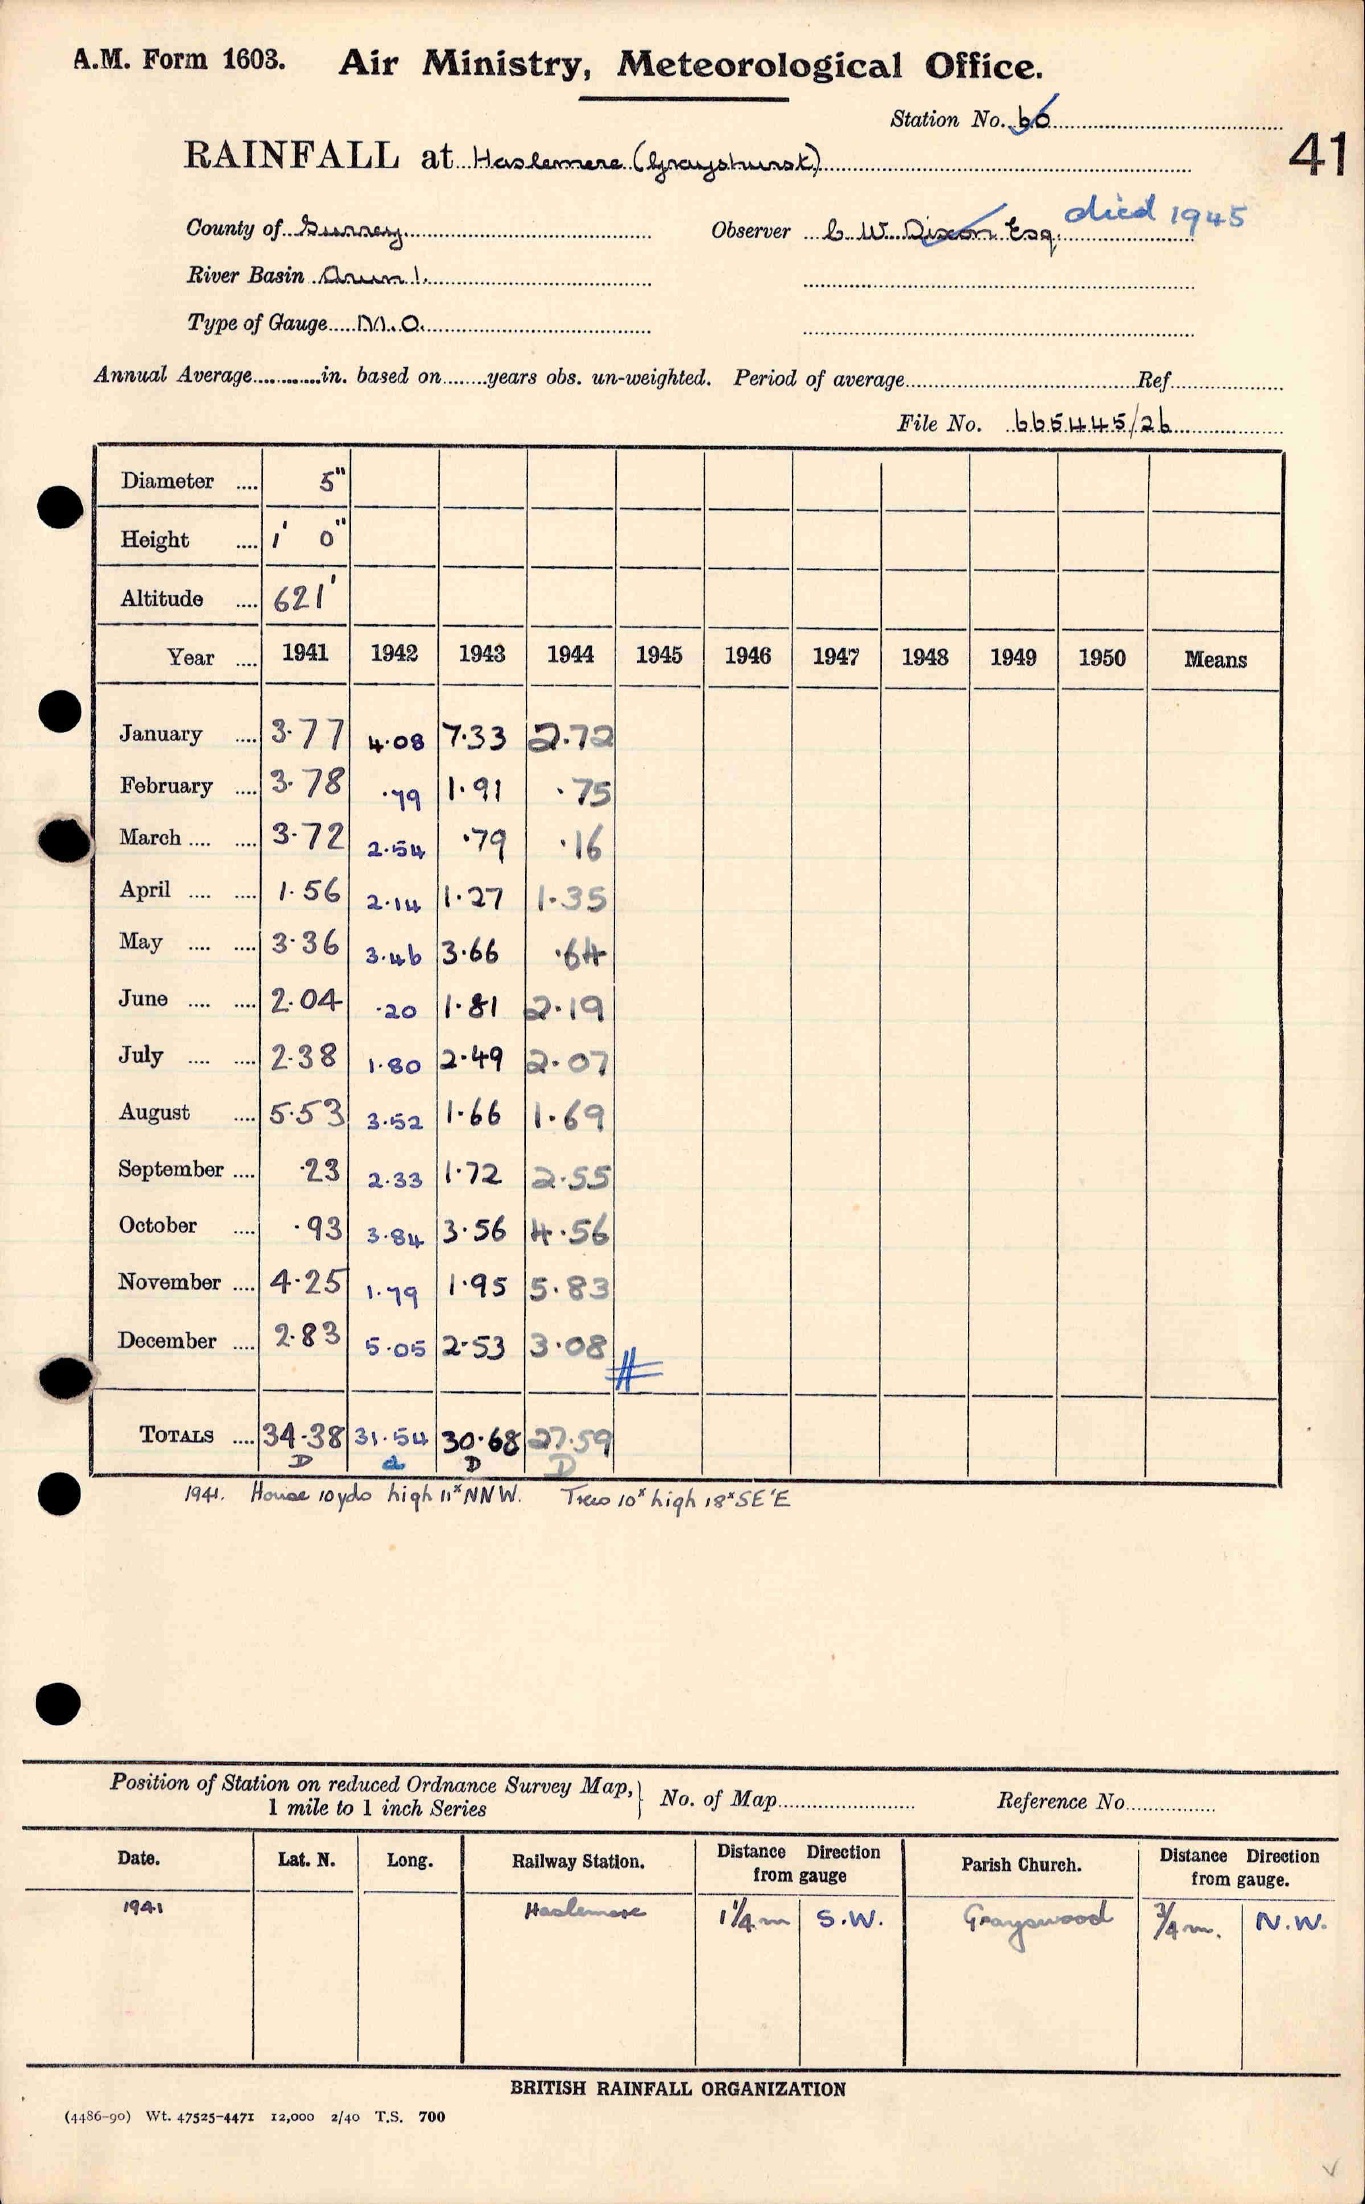 A.M. Form 1603. Air Ministry, Meteorological Office.
Station No. 60
41
RAINFALL at Haslemere (Grayshurst)
died 1945
County of Surrey Observer C. W. Dixon Esq.
River Basin Arun 1.
Type of Gauge M.O.
Annual Average in. based on years obs. un-weighted. Period of average Ref
File No. 665445/26
Diameter 5"
Height 1' 0"
Altitude 621'
Year 1941 1942 1943 1944 1945 1946 1947 1948 1949 1950 Means
January 3.77 4.08 7.33 2.72
February 3.78 .79 1.91 .75
March 3.72 2.54 .79 .16
April 1.56 2.14 1.27 1.35
May 3.36 3.46 3.66 .64
June 2.04 .20 1.81 2.19
July 2.38 1.80 2.49 2.07
August 5.53 3.52 1.66 1.69
September .23 2.33 1.72 2.55
October .93 3.84 3.56 4.56
November 4.25 1.79 1.95 5.83
December 2.83 5.05 2.53 3.08
TOTALS 34.38 31.54 30.68 27.59
D d D D
1941. House 10 yds high 11x NNW. Trees 10x high 18x SE'E
Position of Station on reduced Ordnance Survey Map, No. of Map Reference No
1 mile to 1 inch Series
Date. Lat. N. Long. Railway Station. Distance Direction from gauge Parish Church. Distance Direction from gauge.
1941 Haslemere 1 1/4 m S.W. Grayswood 3/4 m. N.W.
BRITISH RAINFALL ORGANIZATION
(4486-90) Wt. 47525-4471 12,000 2/40 T.S. 700